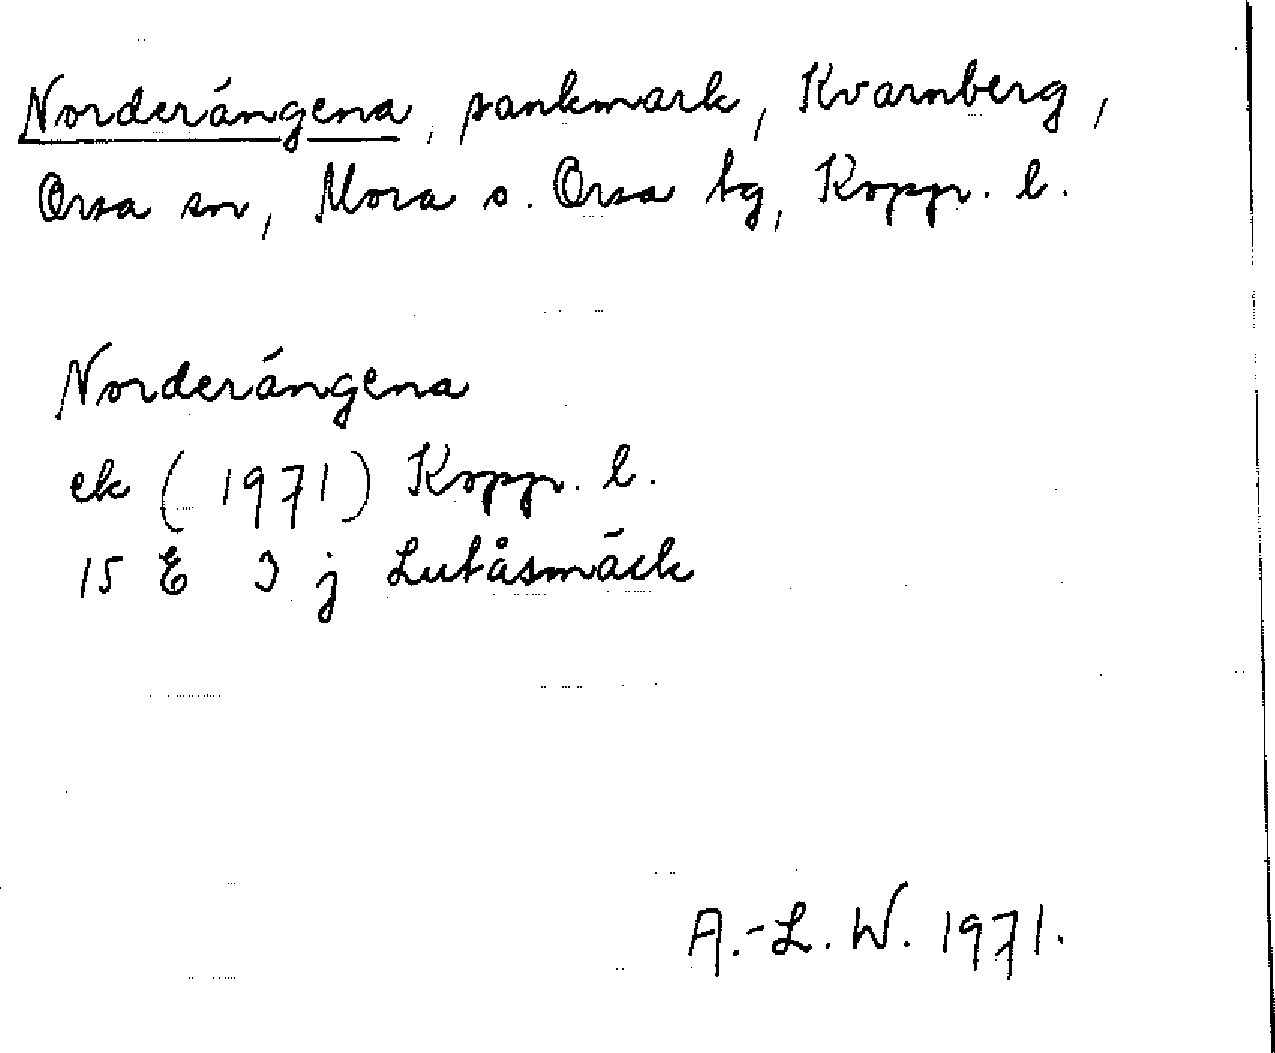 Norderängena, sankmark, Kvarnberg,
Orsa sn, Mora o. Orsa tg, Koppr. l.
Norderängena
ek (1971) Koppr. l.
15 E 3 j Lutåsmäck
A.-L. W. 1971.